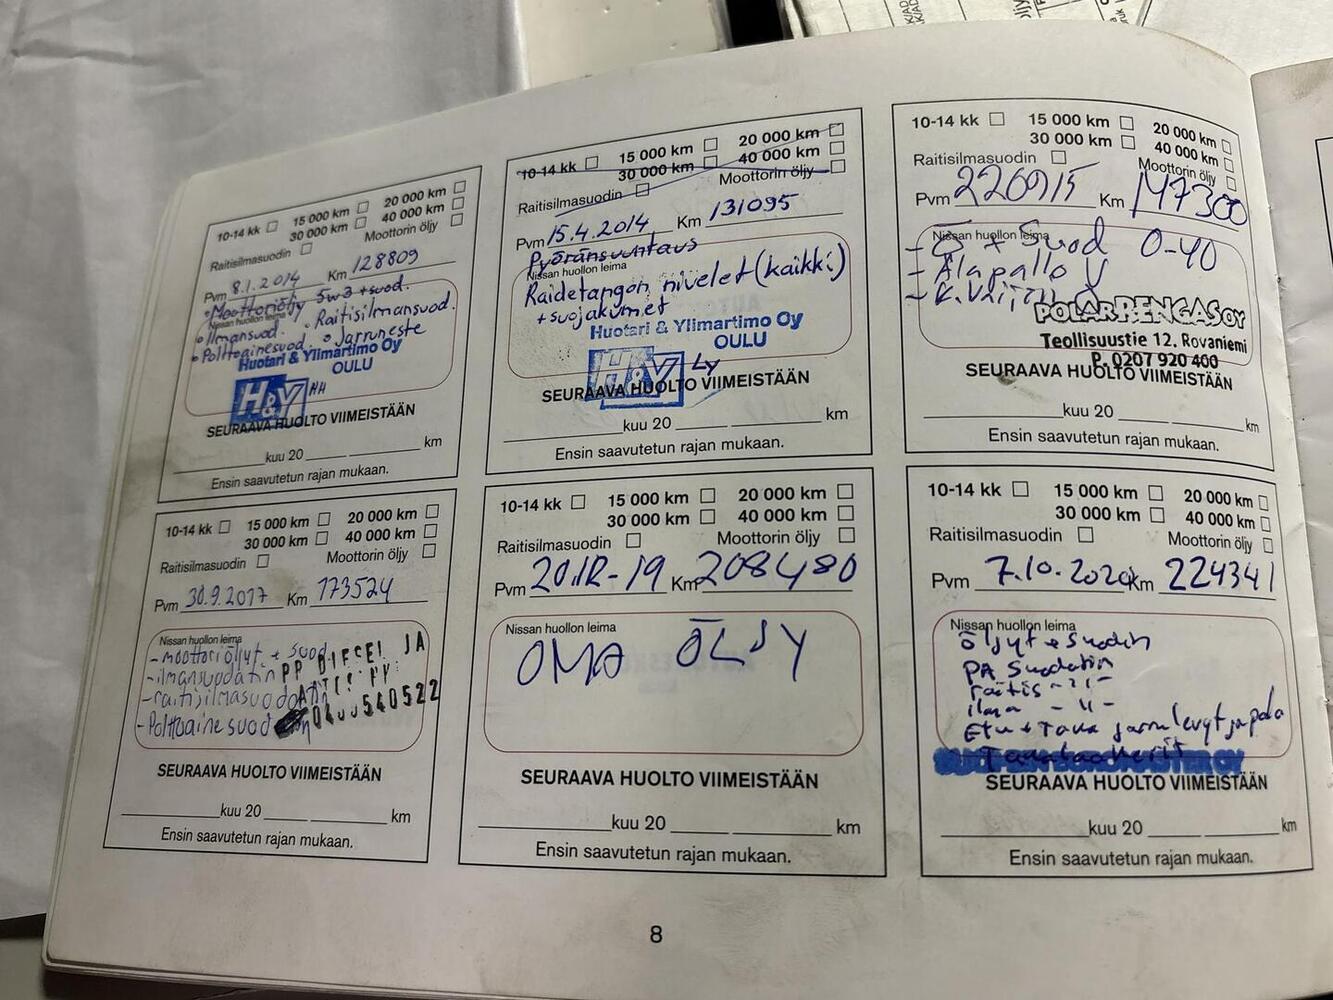 10-14 kk 15 000 km 20 000 km
30 000 km 40 000 km
Raitisilmasuodin Moottorin öljy
Pvm 8.1.2014 Km 128809
• Moottoriöljy 5w3 + suod.
Nissan huollon leima
• Ilmansuod. • Raitisilmansuod.
• Polttoainesuod. • Jarruneste
Huotari & Ylimartimo Oy
OULU
H&Y
SEURAAVA HUOLTO VIIMEISTÄÄN
kuu 20 km
Ensin saavutetun rajan mukaan.
10-14 kk 15 000 km 20 000 km
30 000 km 40 000 km
Raitisilmasuodin Moottorin öljy
Pvm 15.4.2014 Km 131095
Pyöränsuuntaus
Nissan huollon leima
Raidetangon nivelet (kaikki)
+ suojakumet
Huotari & Ylimartimo Oy
OULU
H&Y Ly
SEURAAVA HUOLTO VIIMEISTÄÄN
kuu 20 km
Ensin saavutetun rajan mukaan.
10-14 kk 15 000 km 20 000 km
30 000 km 40 000 km
Raitisilmasuodin Moottorin öljy
Pvm 220915 Km 147300
Nissan huollon leima
+ Suod 0-40
- Alapallo V
POLARRENGAS OY
Teollisuustie 12, Rovaniemi
P. 0207 920 400
SEURAAVA HUOLTO VIIMEISTÄÄN
kuu 20 km
Ensin saavutetun rajan mukaan.
10-14 kk 15 000 km 20 000 km
30 000 km 40 000 km
Raitisilmasuodin Moottorin öljy
Pvm 30.9.2017 Km 173524
Nissan huollon leima
- moottoriöljyt + suod
- ilmansuodatin PP DIESEL JA
- raitisilmasuodatin
- Polttoainesuod 0400540522
SEURAAVA HUOLTO VIIMEISTÄÄN
kuu 20 km
Ensin saavutetun rajan mukaan.
10-14 kk 15 000 km 20 000 km
30 000 km 40 000 km
Raitisilmasuodin Moottorin öljy
Pvm 20.12-19 Km 208480
Nissan huollon leima
OMA ÖLJY
SEURAAVA HUOLTO VIIMEISTÄÄN
kuu 20 km
Ensin saavutetun rajan mukaan.
10-14 kk 15 000 km 20 000 km
30 000 km 40 000 km
Raitisilmasuodin Moottorin öljy
Pvm 7.10.2020 Km 224341
Nissan huollon leima
Öljyt + suodin
PA Suodatin
raitis -"-
ilma -"-
Etu + Taka jarrulevyt ja pala
SEURAAVA HUOLTO VIIMEISTÄÄN
kuu 20 km
Ensin saavutetun rajan mukaan.
8